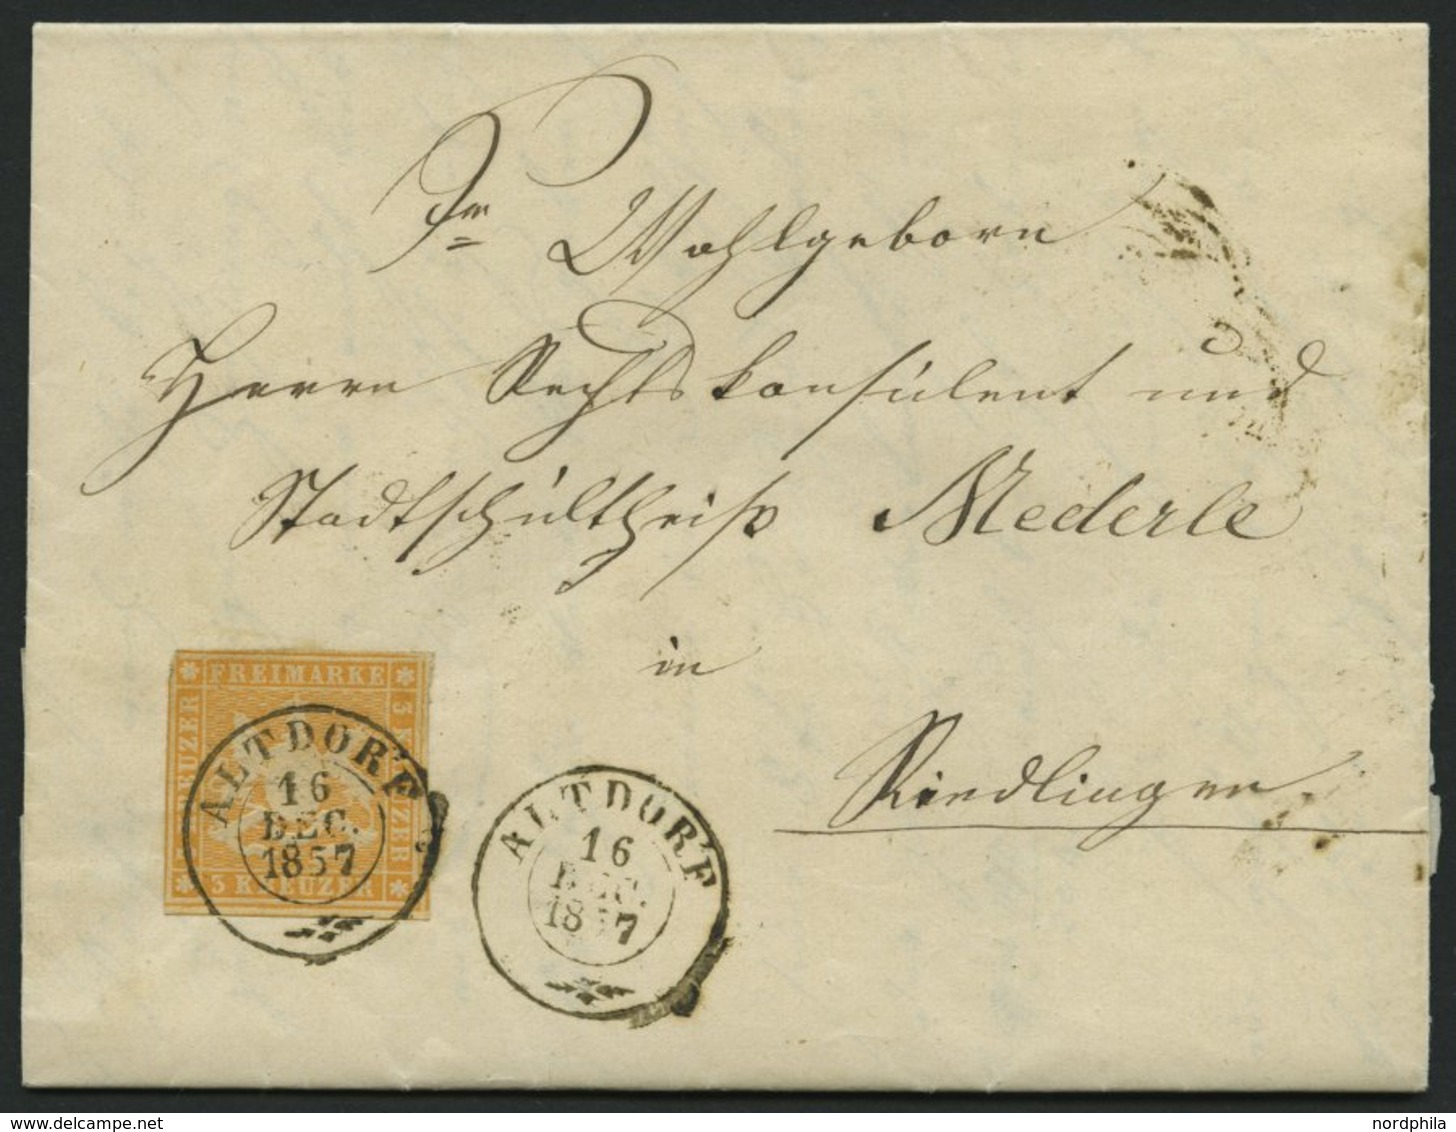 Sr Wohlgeborn
Herrn Rechtskonsulent und
Stadtschultheiß Mederle
in
Riedlingen.
FREIMARKE
3 KREUZER
3 KREUZER
3 KREUZER
ALTDORF
16
DEC.
1857
ALTDORF
16
DEC.
1857
www.delcampe.net
nordphila